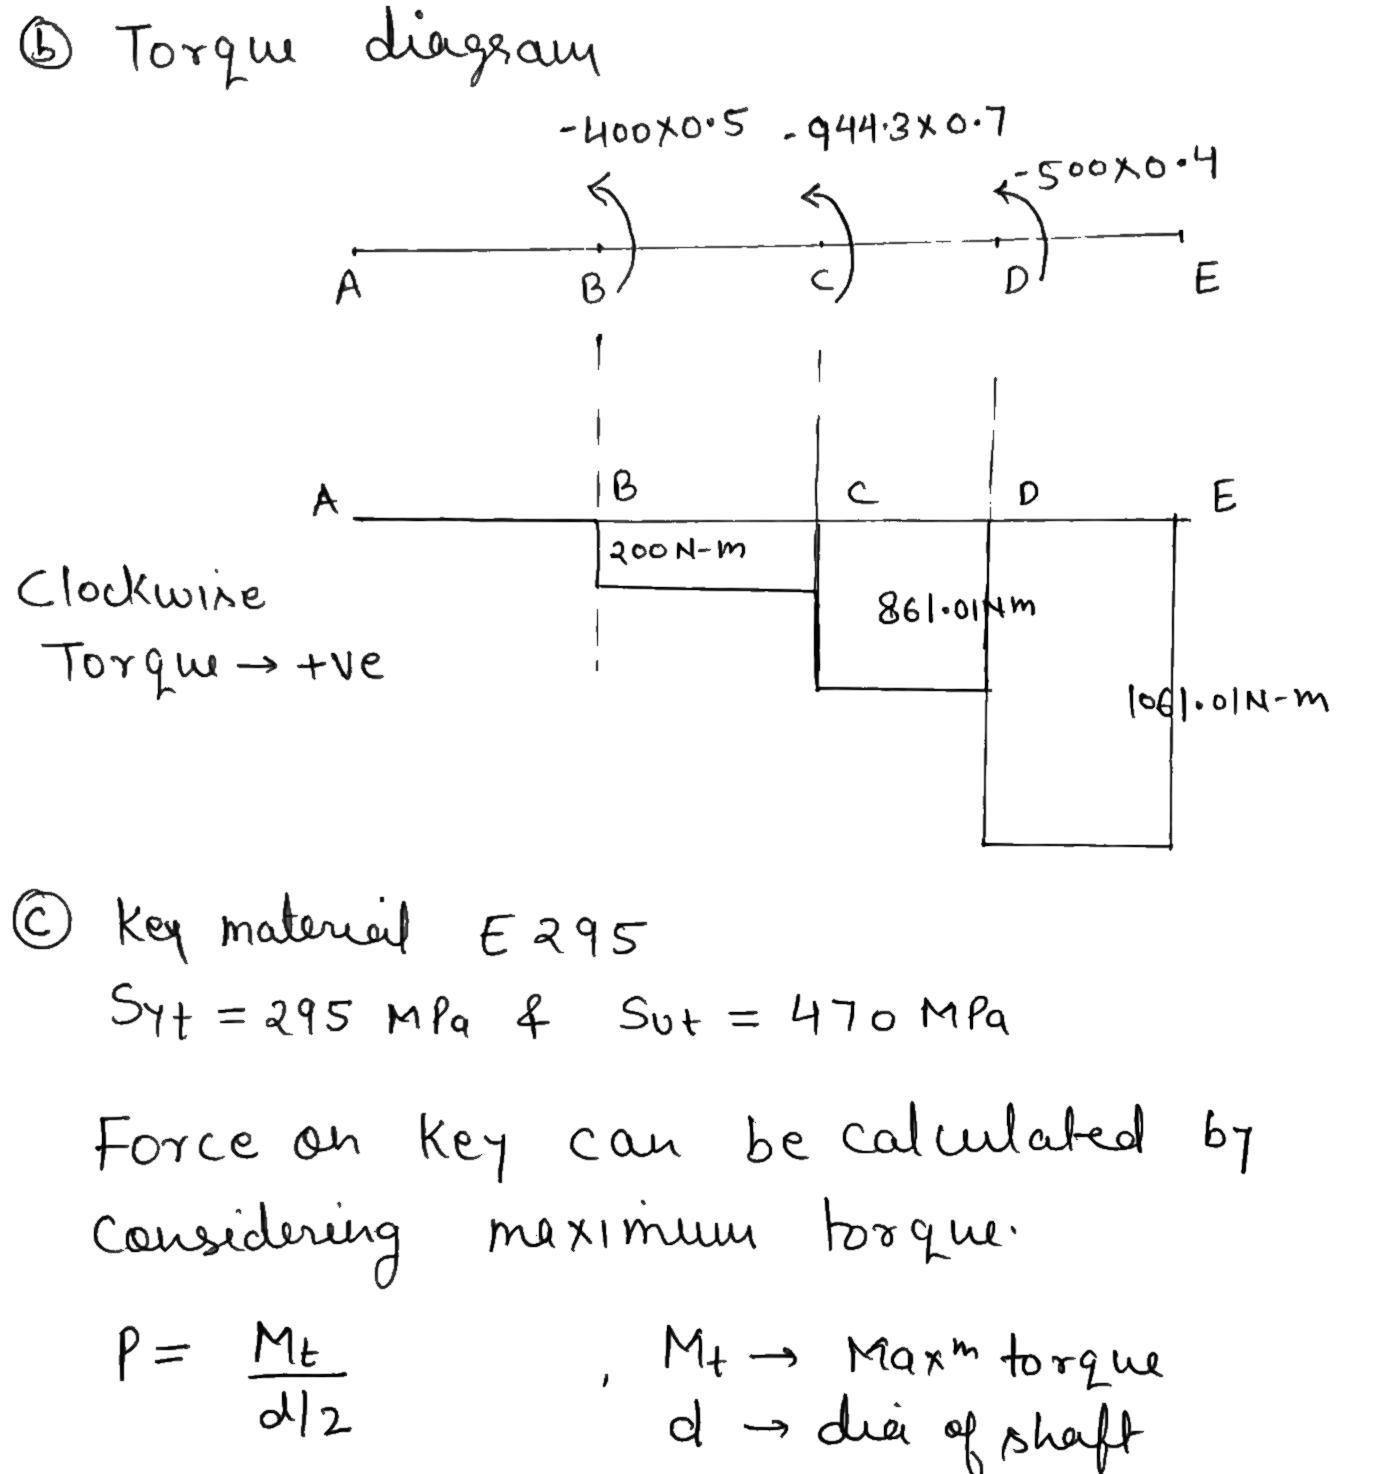 ⓑ Torque diagram
-400×0.5 -944.3×0.7
-500×0.4
A B C D E
A B C D E
200 N-m
Clockwise
861.01Nm
Torque → +ve
1061.01N-m
ⓒ Key material E295
Syt = 295 MPa & Sut = 470 MPa
Force on key can be calculated by
considering maximum torque.
P = Mt / d/2 , Mt → Maxm torque
d → dia of shaft